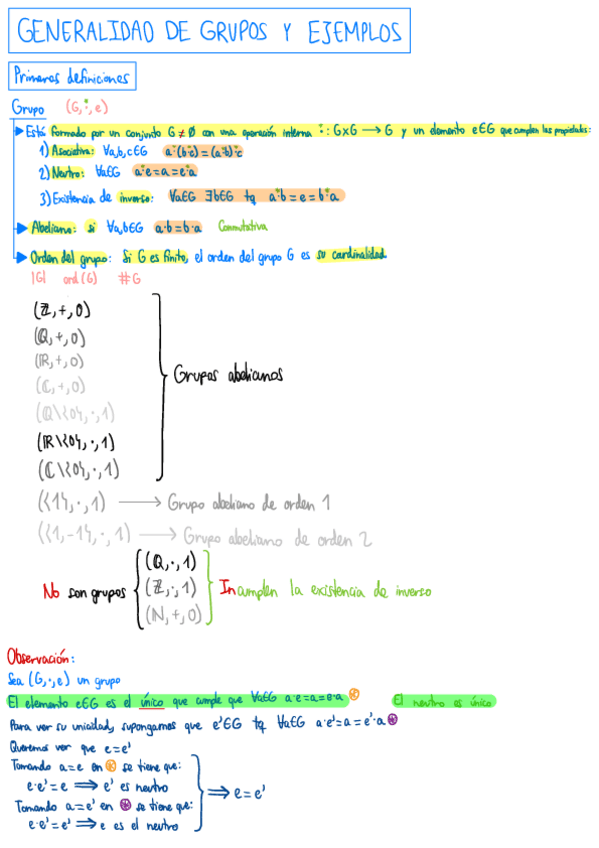 GENERALIDAD DE GRUPOS Y EJEMPLOS
Primeras definiciones
Grupo (G, ·, e)
Está formado por un conjunto G ≠ ∅ con una operación interna · : G×G → G y un elemento e∈G que cumplen las propiedades:
1) Asociativa: ∀a,b,c∈G a·(b·c)=(a·b)·c
2) Neutro: ∀a∈G a·e=a=e·a
3) Existencia de inverso: ∀a∈G ∃b∈G tq a·b=e=b·a
Abeliano: si ∀a,b∈G a·b=b·a Conmutativa
Orden del grupo: Si G es finito, el orden del grupo G es su cardinalidad
|G| ord(G) #G
(ℤ,+,0)
(ℚ,+,0)
(ℝ,+,0)
(ℂ,+,0)
Grupos abelianos
(ℚ\{0},·,1)
(ℝ\{0},·,1)
(ℂ\{0},·,1)
({1},·,1) → Grupo abeliano de orden 1
({1,-1},·,1) → Grupo abeliano de orden 2
No son grupos
(ℚ,·,1)
(ℤ,·,1)
(ℕ,+,0)
Incumplen la existencia de inverso
Observación:
Sea (G,·,e) un grupo
El elemento e∈G es el único que cumple que ∀a∈G a·e=a=e·a ⊛ El neutro es único
Para ver su unicidad, supongamos que e'∈G tq ∀a∈G a·e'=a=e'·a ⊛
Queremos ver que e=e'
Tomando a=e en ⊛ se tiene que:
e·e'=e ⟹ e' es neutro
Tomando a=e' en ⊛ se tiene que:
e·e'=e' ⟹ e es el neutro
⟹ e=e'